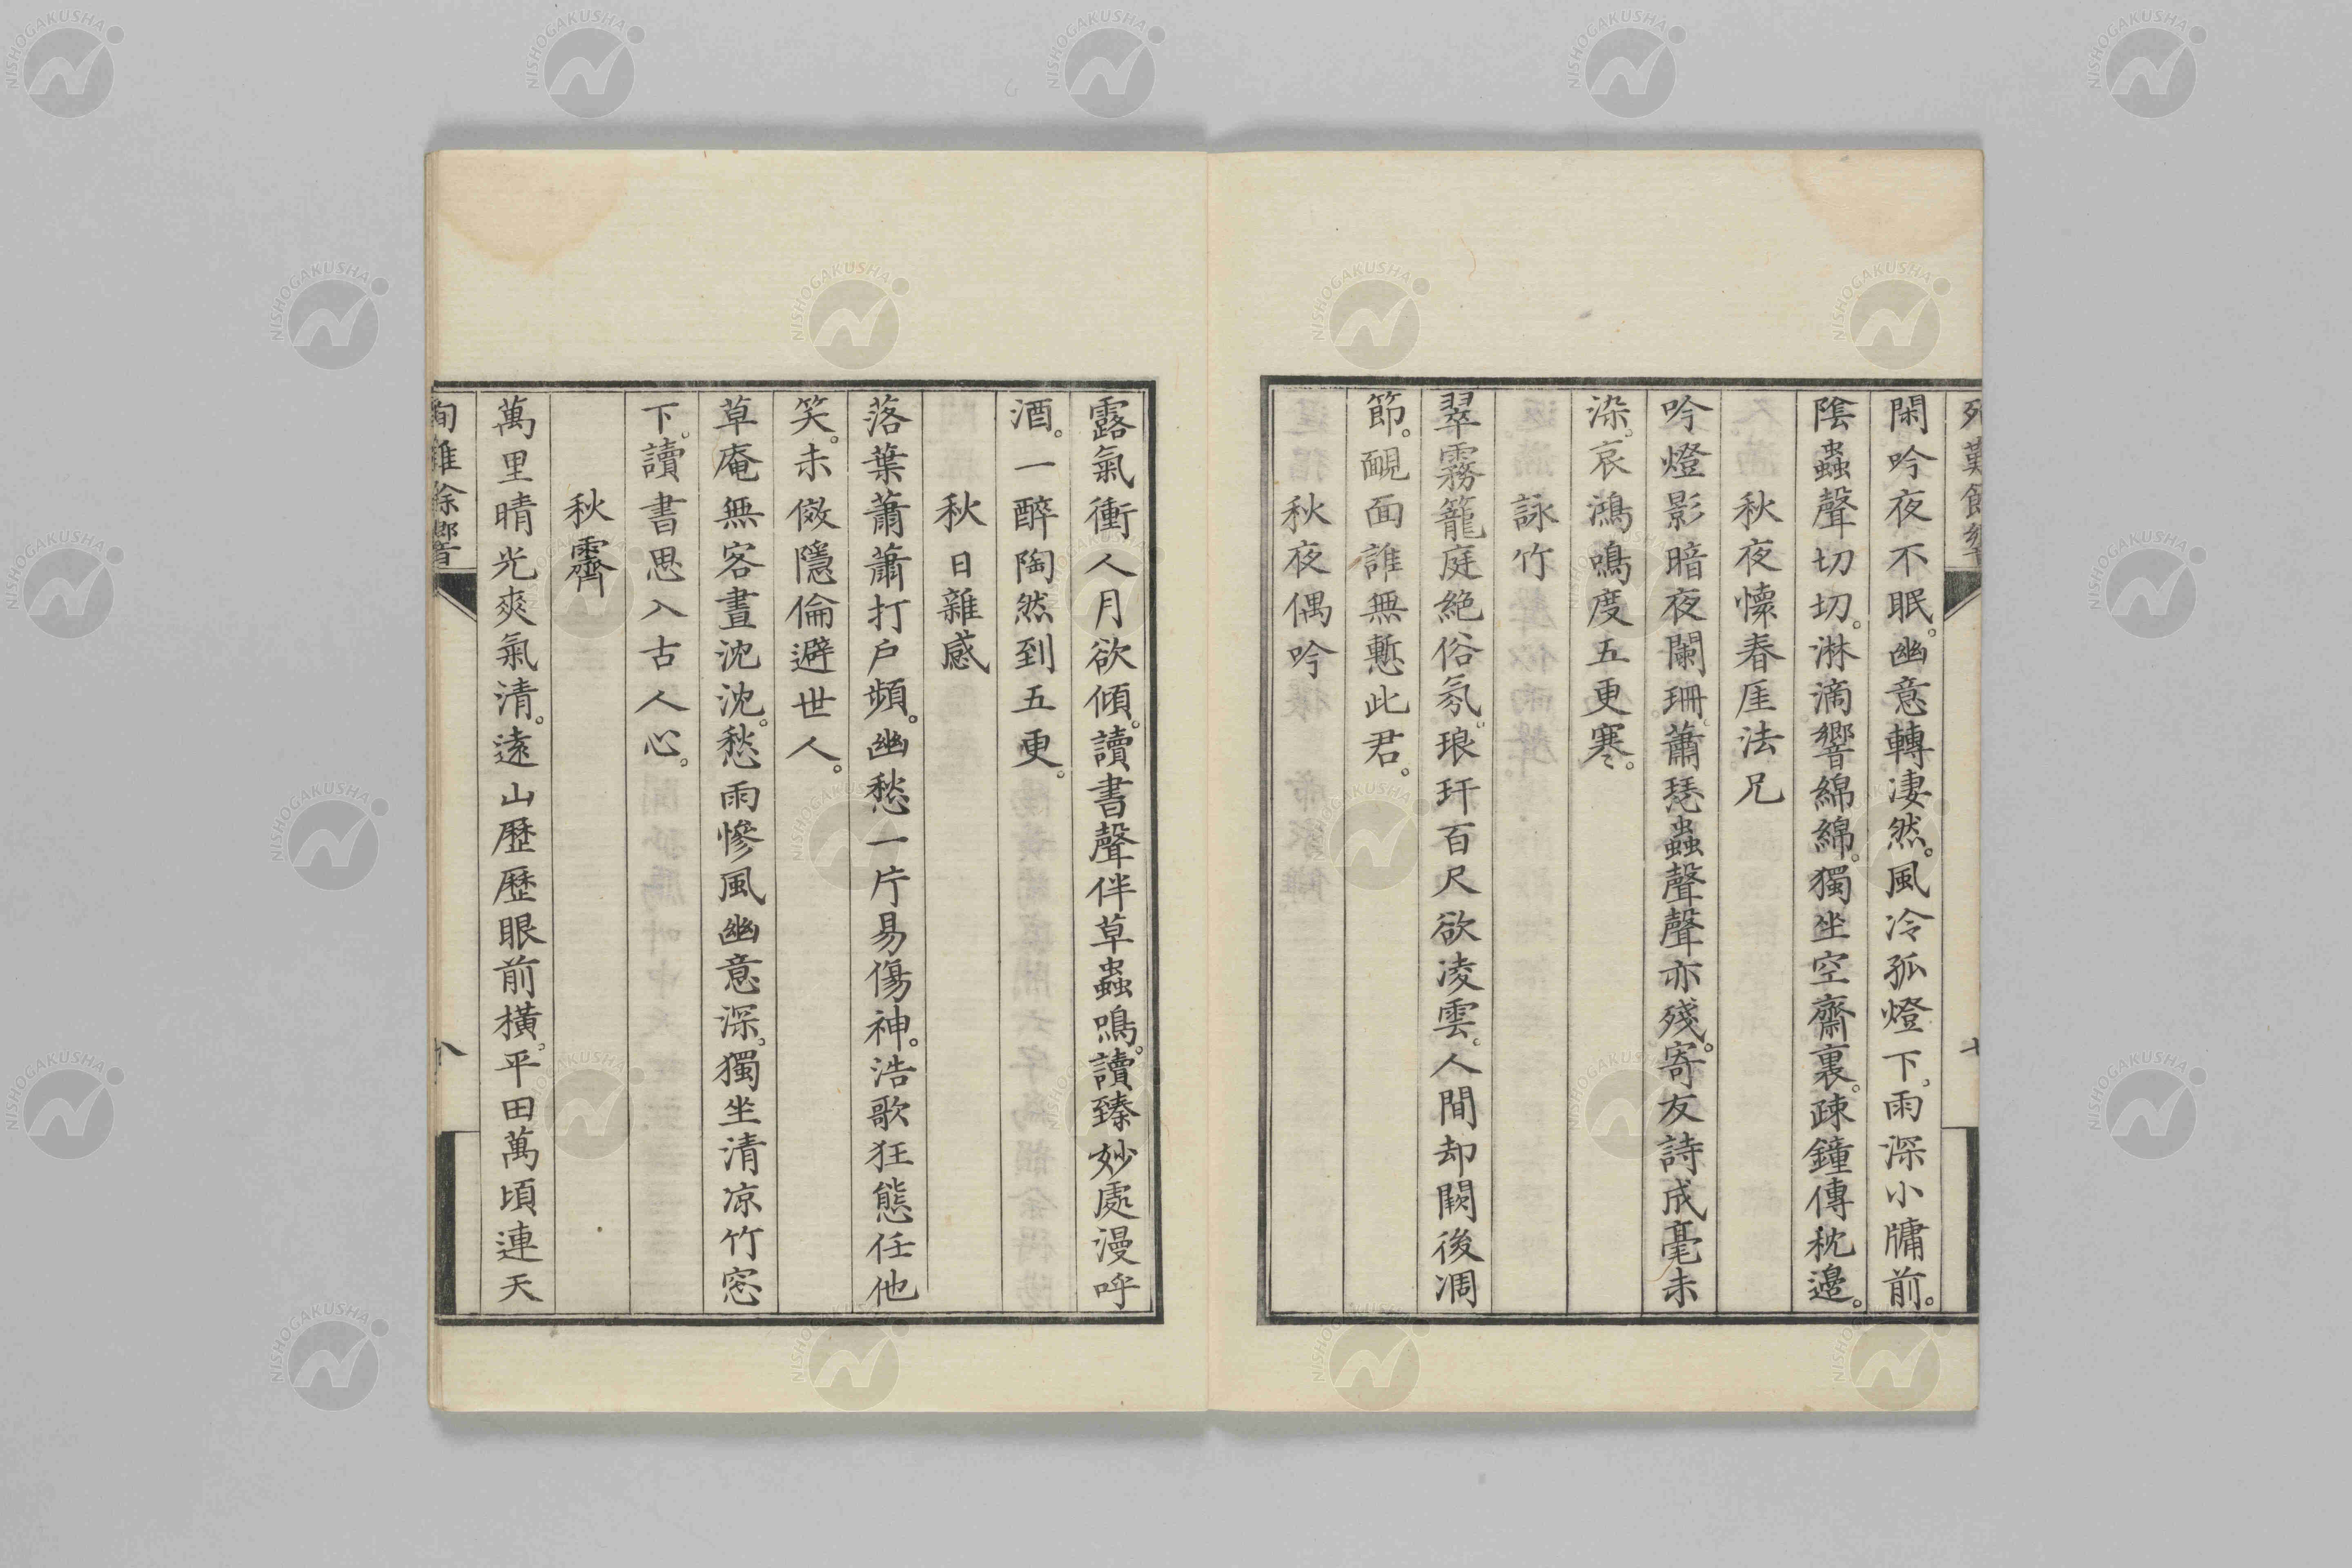 閑吟夜不眠。幽意轉凄然。風冷孤燈下。雨深小牗前。
陰蟲聲切切。淋滴響綿綿。獨坐空齋裏。疎鐘傳枕邉。
秋夜懷春厓法兄
吟燈影暗夜闌珊。蕭琵蟲聲聲亦殘。寄友詩成毫未
染。哀鴻鳴度五更寒。
詠竹
翠霧籠庭絶俗氛。琅玕百尺欲凌雲。人間却闕後凋
節。靦面誰無慙此君。
秋夜偶吟
露氣衝人月欲傾。讀書聲伴草蟲鳴。讀臻妙處漫呼
酒。一醉陶然到五更。
秋日雜感
落葉蕭蕭打戶頻。幽愁一片易傷神。浩歌狂態任他
笑。未傚隱倫避世人。
草庵無客晝沈沈。愁雨慘風幽意深。獨坐清凉竹窓
下。讀書思入古人心。
秋霽
萬里晴光爽氣清。遠山歷歷眼前橫。平田萬頃連天
八
NISHOGAKUSHA